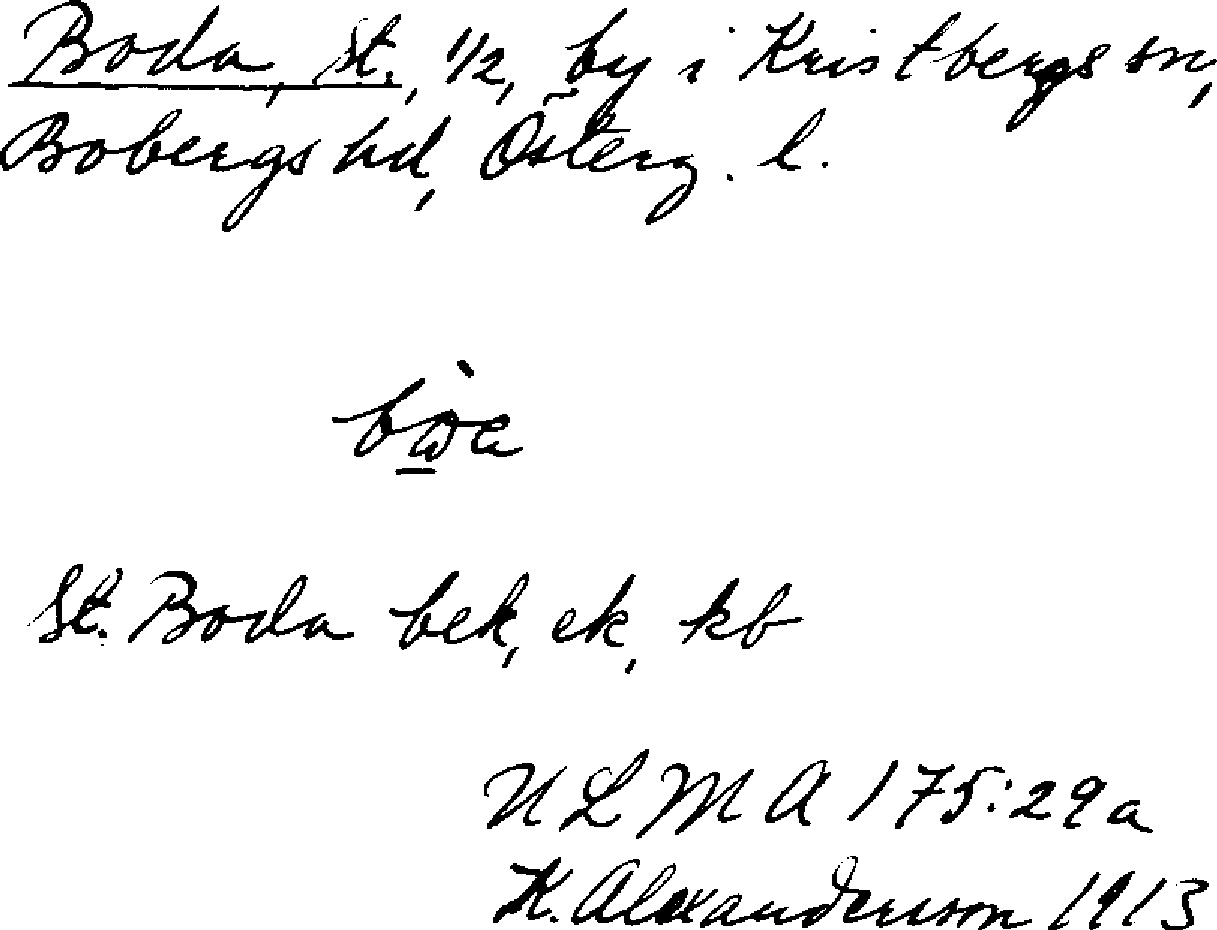 Boda, St., 1/2, by i Kristbergs sn,
Bobergs hd, Österg. l.
St. Boda bek, ek, kb
ULMA 175:29a
K. Alexanderson 1913